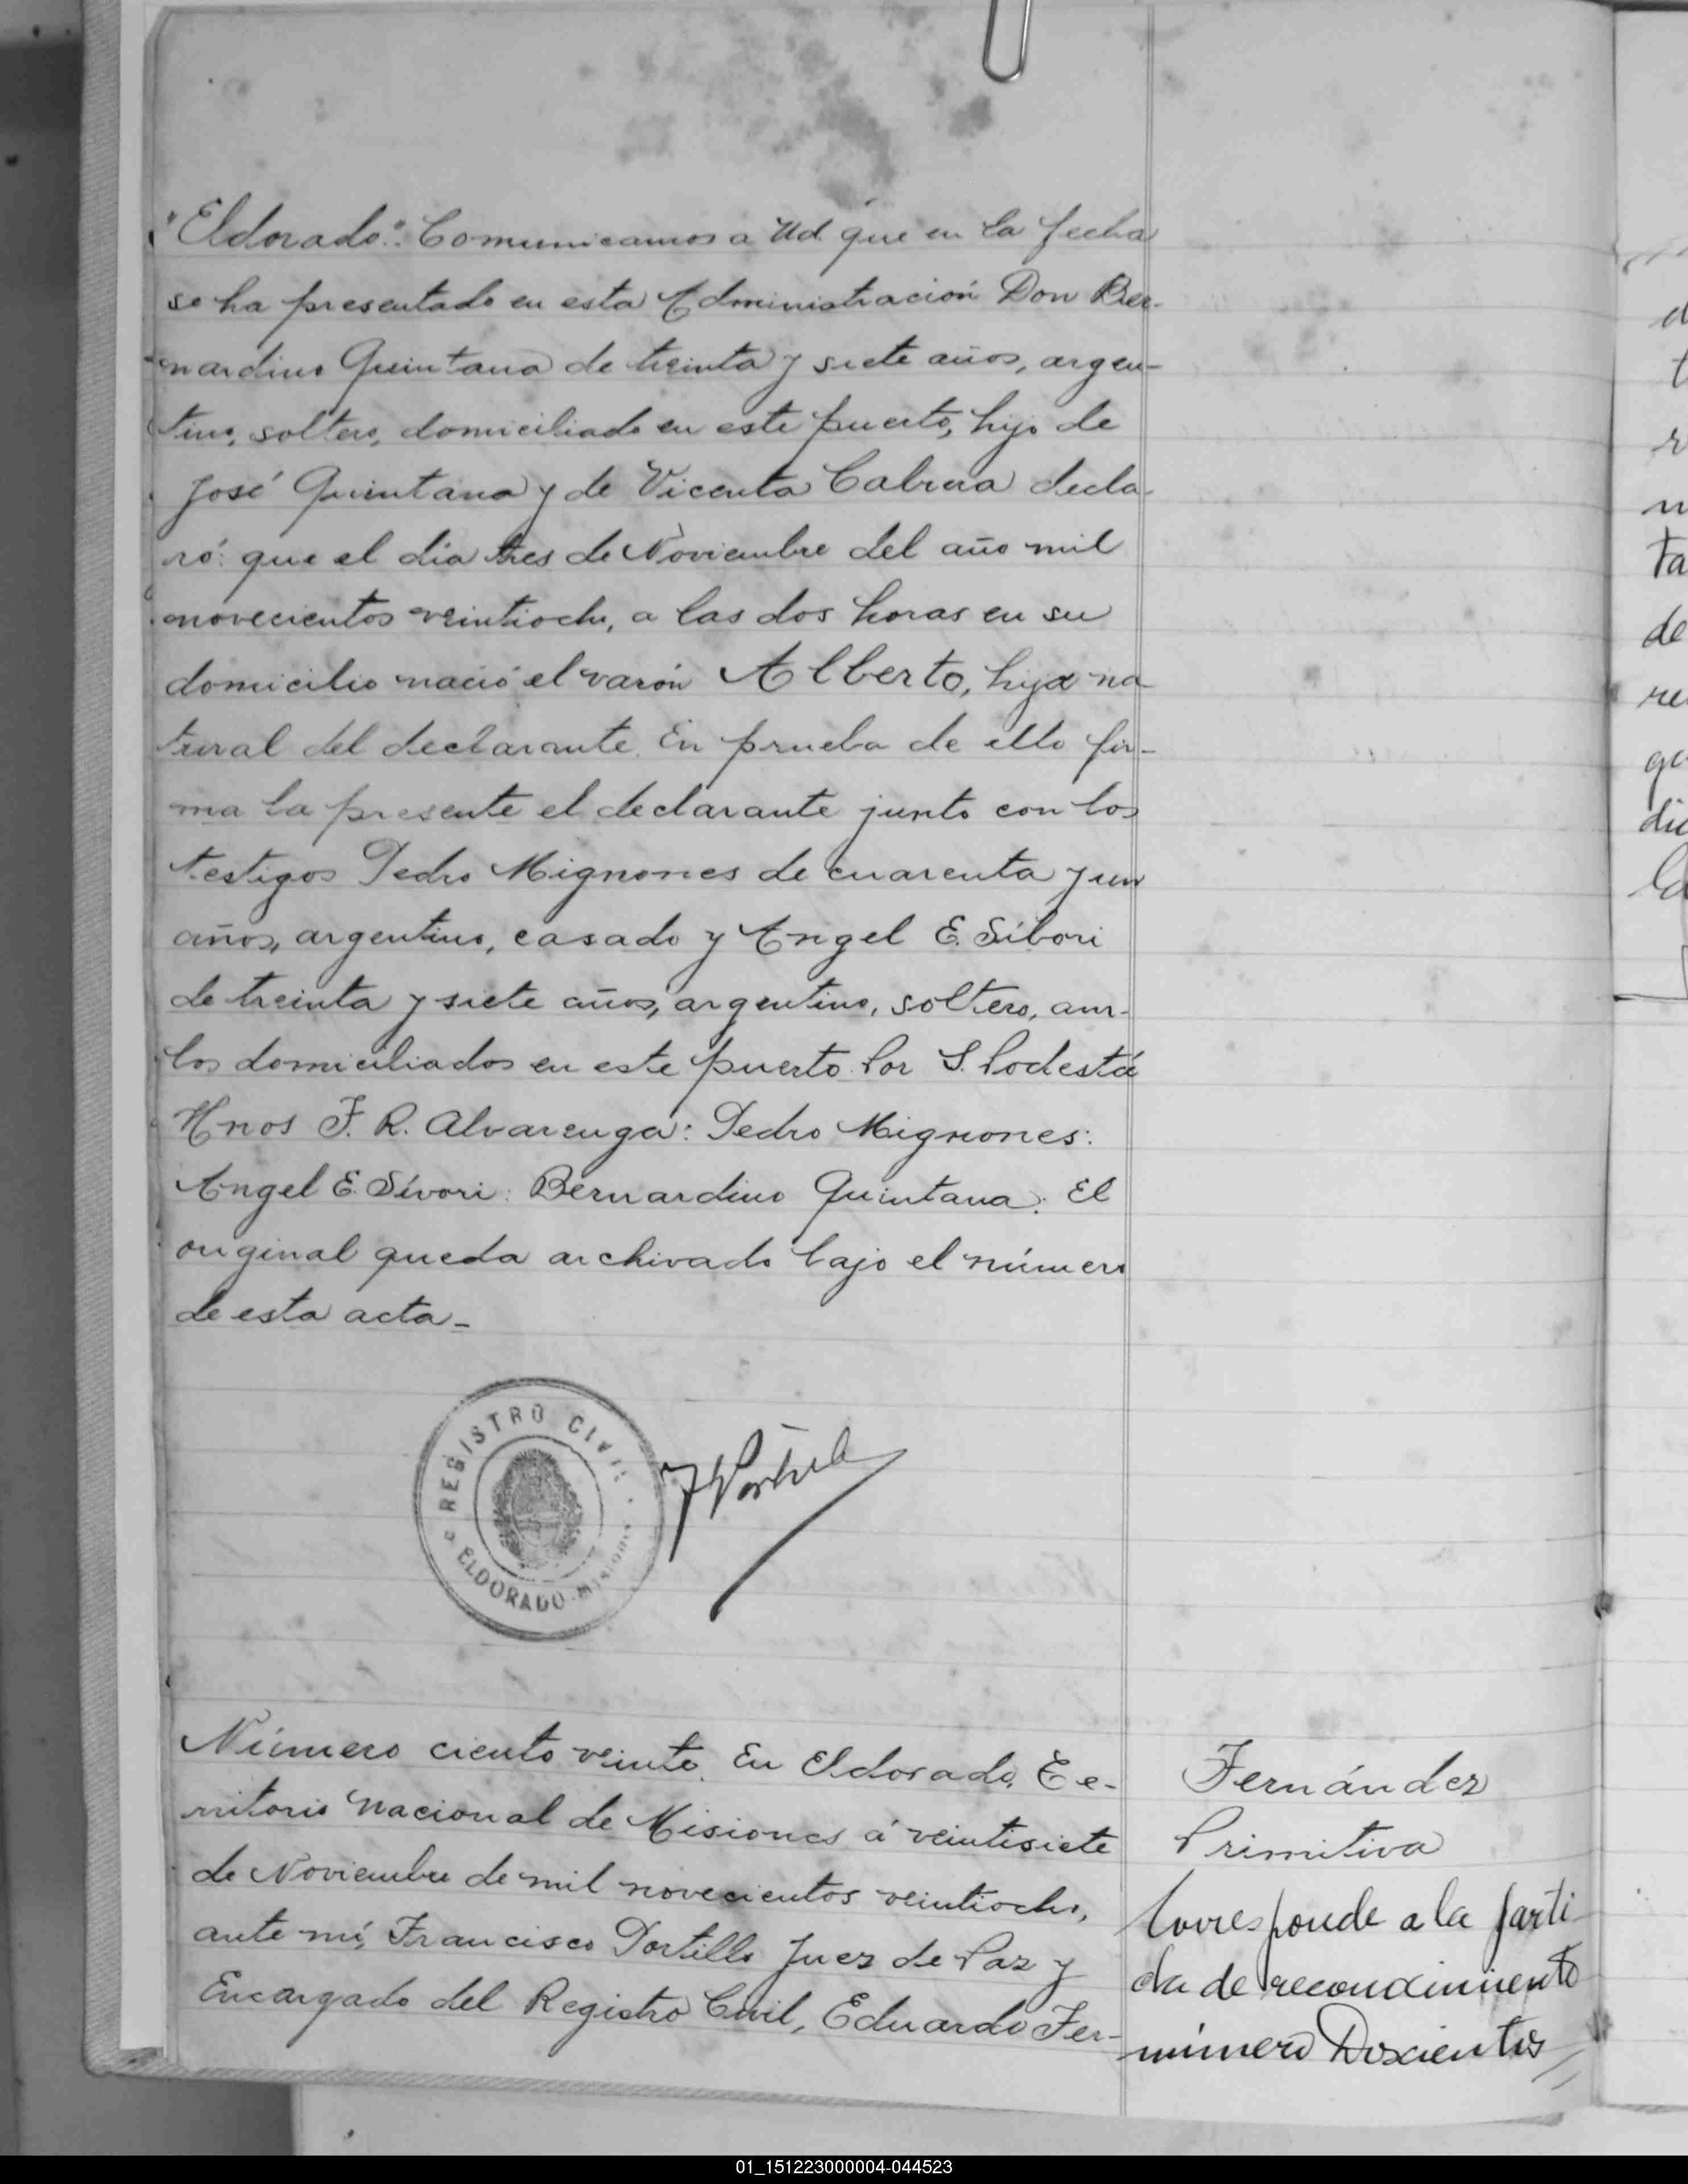 "Eldorado". Comunicamos a Ud. que en la fecha
se ha presentado en esta Administración Don Ber-
nardino Quintana de treinta y siete años, argen-
tino, soltero, domiciliado en este puerto, hijo de
José Quintana y de Vicenta Cabrera decla-
ró: que el día tres de Noviembre del año mil
novecientos veintiocho, a las dos horas en su
domicilio nació el varón Alberto, hijo na-
tural del declarante. En prueba de ello fir-
ma la presente el declarante junto con los
testigos Pedro Mignones de cuarenta y un
años, argentino, casado y Angel E. Síbori
de treinta y siete años, argentino, soltero, am-
bos domiciliados en este puerto. Por S. Podestá
Hnos F. R. Alvarenga: Pedro Mignones:
Angel E. Sívori: Bernardino Quintana: El
original queda archivado bajo el número
de esta acta-
REGISTRO CIVIL
ELDORADO-Misiones
F Portillo
Número ciento veinte. En Eldorado, Te-
rritorio Nacional de Misiones á veintisiete
de Noviembre de mil novecientos veintiocho,
ante mí, Francisco Portillo Juez de Paz y
Encargado del Registro Civil, Eduardo Fer-
Fernández
Primitiva
Corresponde a la parti-
da de reconocimiento
número Doscientos
ta
de
01_151223000004-044523